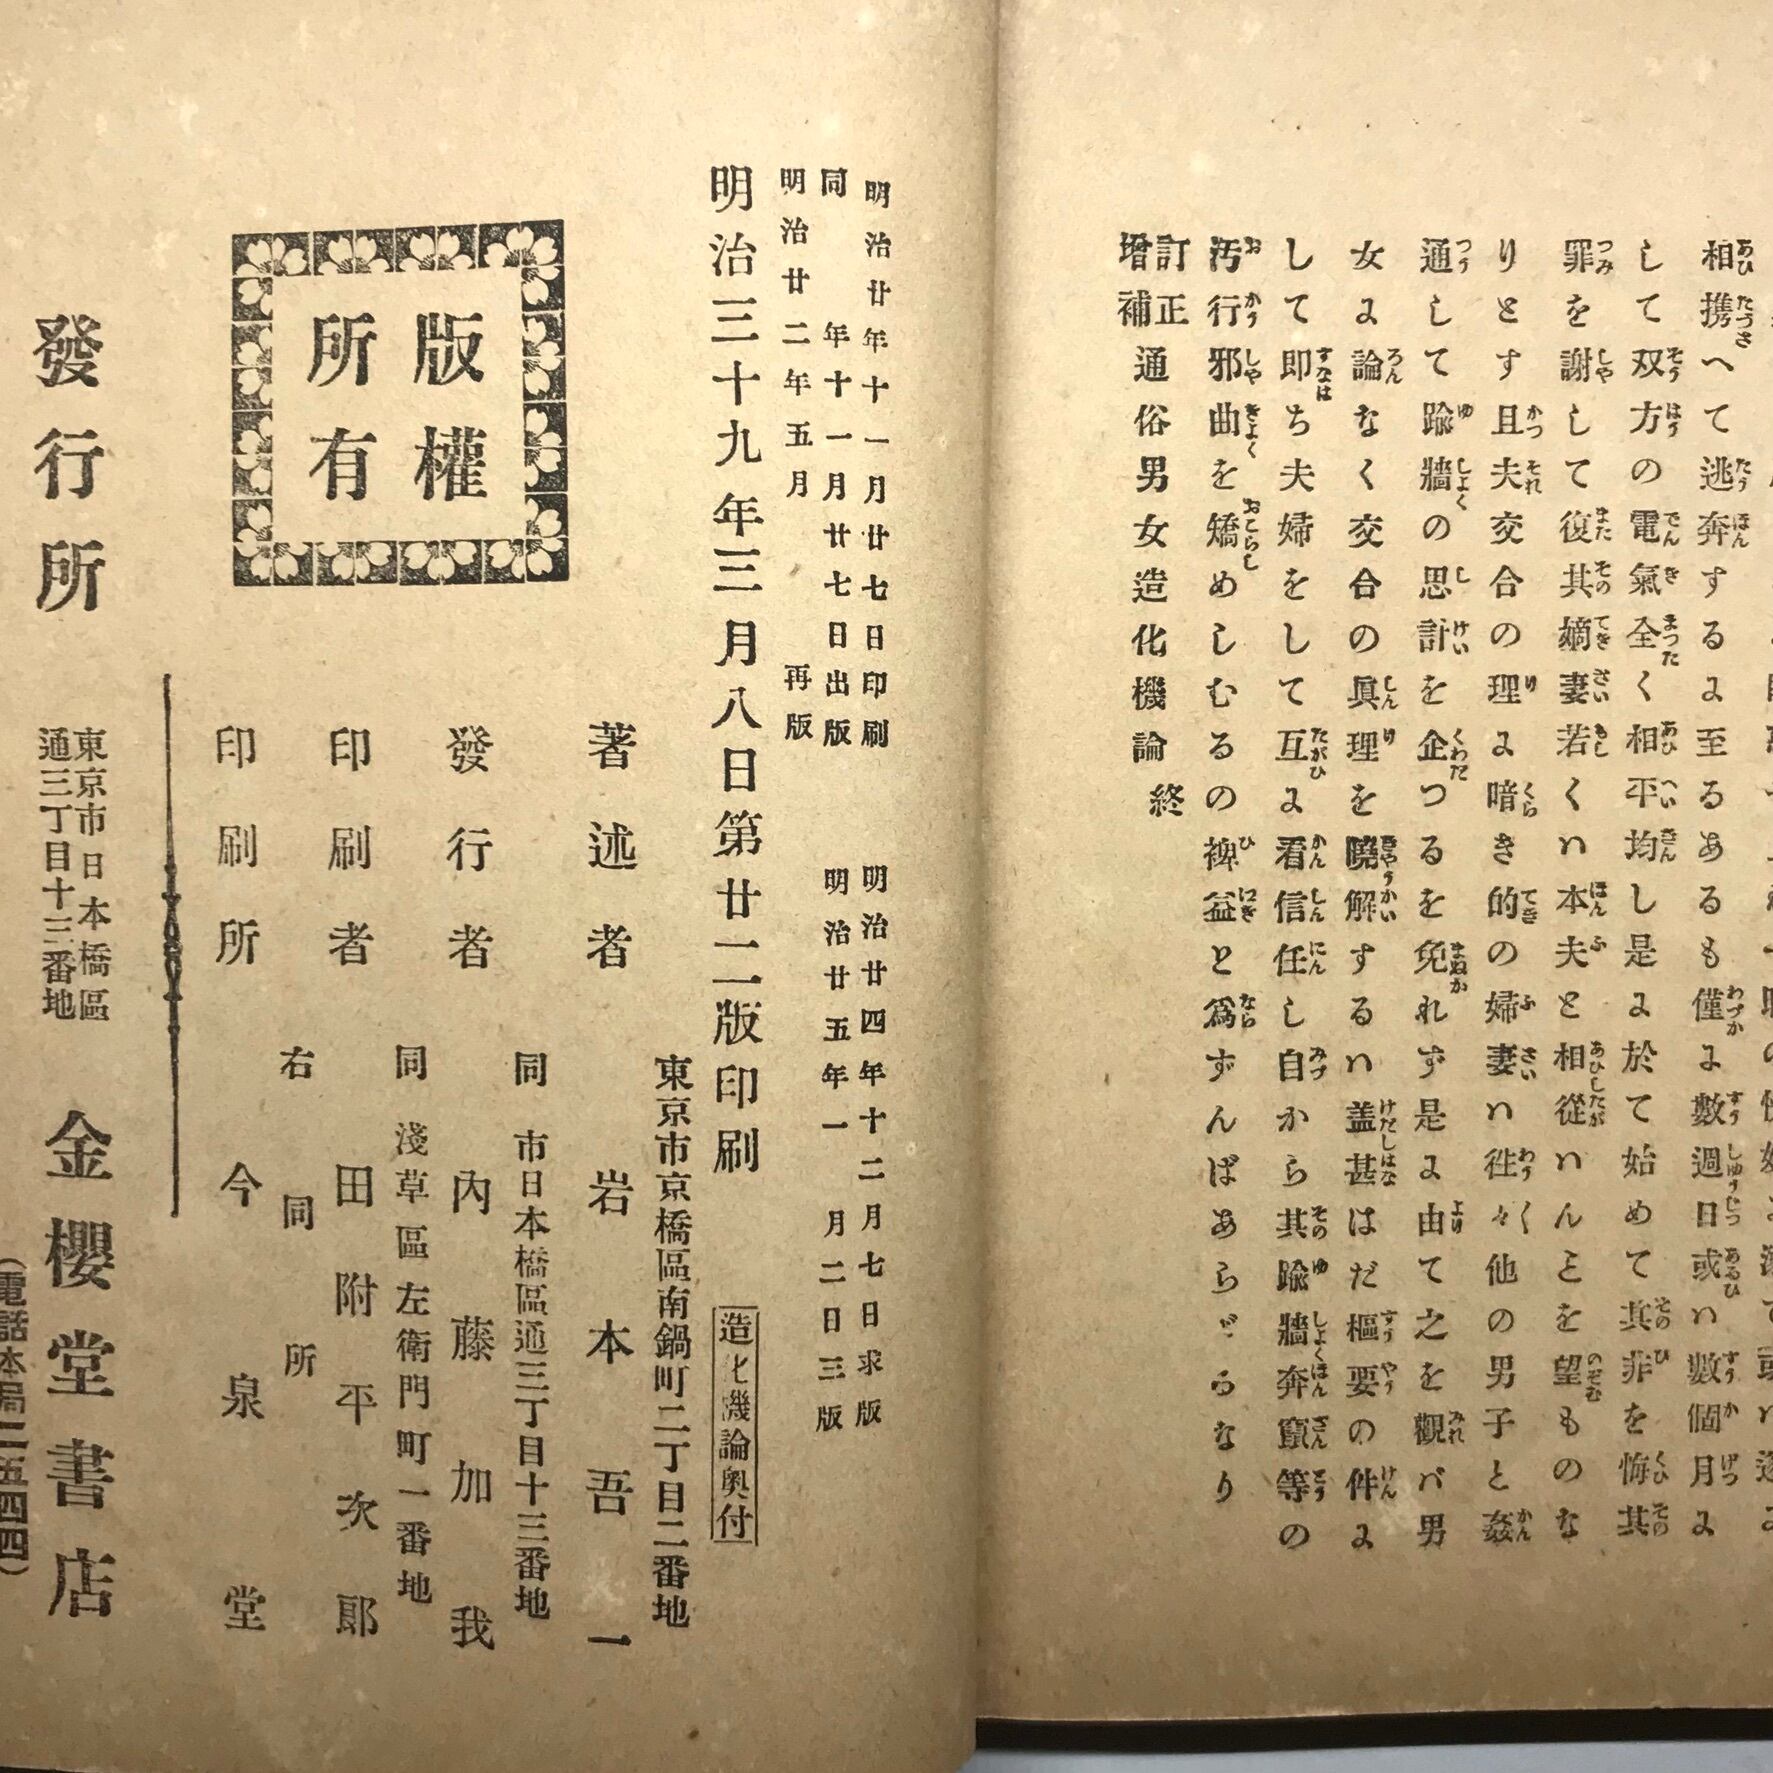 相携へて逃奔するに至るあるも僅に數週日或ハ數個月に
して双方の電氣全く相平均し是に於て始めて其非を悔其
罪を謝して復其嫡妻若くハ本夫と相從ハんことを望ものな
りとす且夫交合の理に暗き的の婦妻ハ徃々他の男子と姦
通して踰牆の思計を企つるを免れず是に由て之を觀バ男
女に論なく交合の眞理を曉解するハ盖甚はだ樞要の件に
して即ち夫婦をして互に看信任し自から其踰牆奔竄等の
汚行邪曲を矯めしむるの裨益と爲ずんばあらざるなり
訂正增補通俗男女造化機論終
明治廿年十一月廿七日印刷
同年十一月廿七日出版
明治廿二年五月再版
明治廿四年十二月七日求版
明治廿五年一月二日三版
明治三十九年三月八日第廿二版印刷
造化機論奥付
東京市京橋區南鍋町二丁目二番地
著述者 岩本吾一
同市日本橋區通三丁目十三番地
發行者 內藤加我
同淺草區左衛門町一番地
印刷者 田附平次郎
右同所
印刷所 今泉堂
版權
所有
東京市日本橋區
通三丁目十三番地
發行所 金櫻堂書店
(電話本局二五四四)